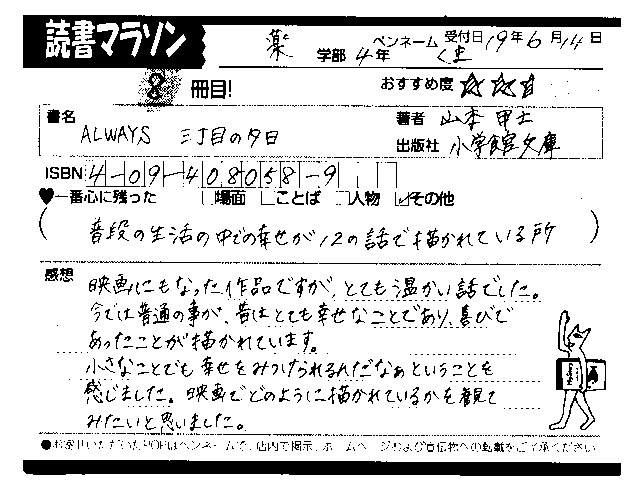 読書マラソン
薬 学部 4年 ペンネーム くま 受付日 19年6月14日
8 冊目!
おすすめ度 ☆☆☆
書名 ALWAYS 三丁目の夕日
著者 山本 甲士
出版社 小学館文庫
ISBN 4-09-408058-9
♥一番心に残った □場面 □ことば □人物 ☑その他
(普段の生活の中での幸せが12の話で描かれている所)
感想 映画にもなった作品ですが、とてもう温かい話でした。
今では普通の事が、昔はとても幸せなことであり、喜びで
あったことが描かれています。
小さなことでも幸せをみつけられるんだなぁということを
感じました。映画でどのように描かれているかを観て
みたいと思いました。
●お寄せいただいたPOPはペンネームで、店内で掲示、ホームページおよび宣伝物への転載をご了承ください